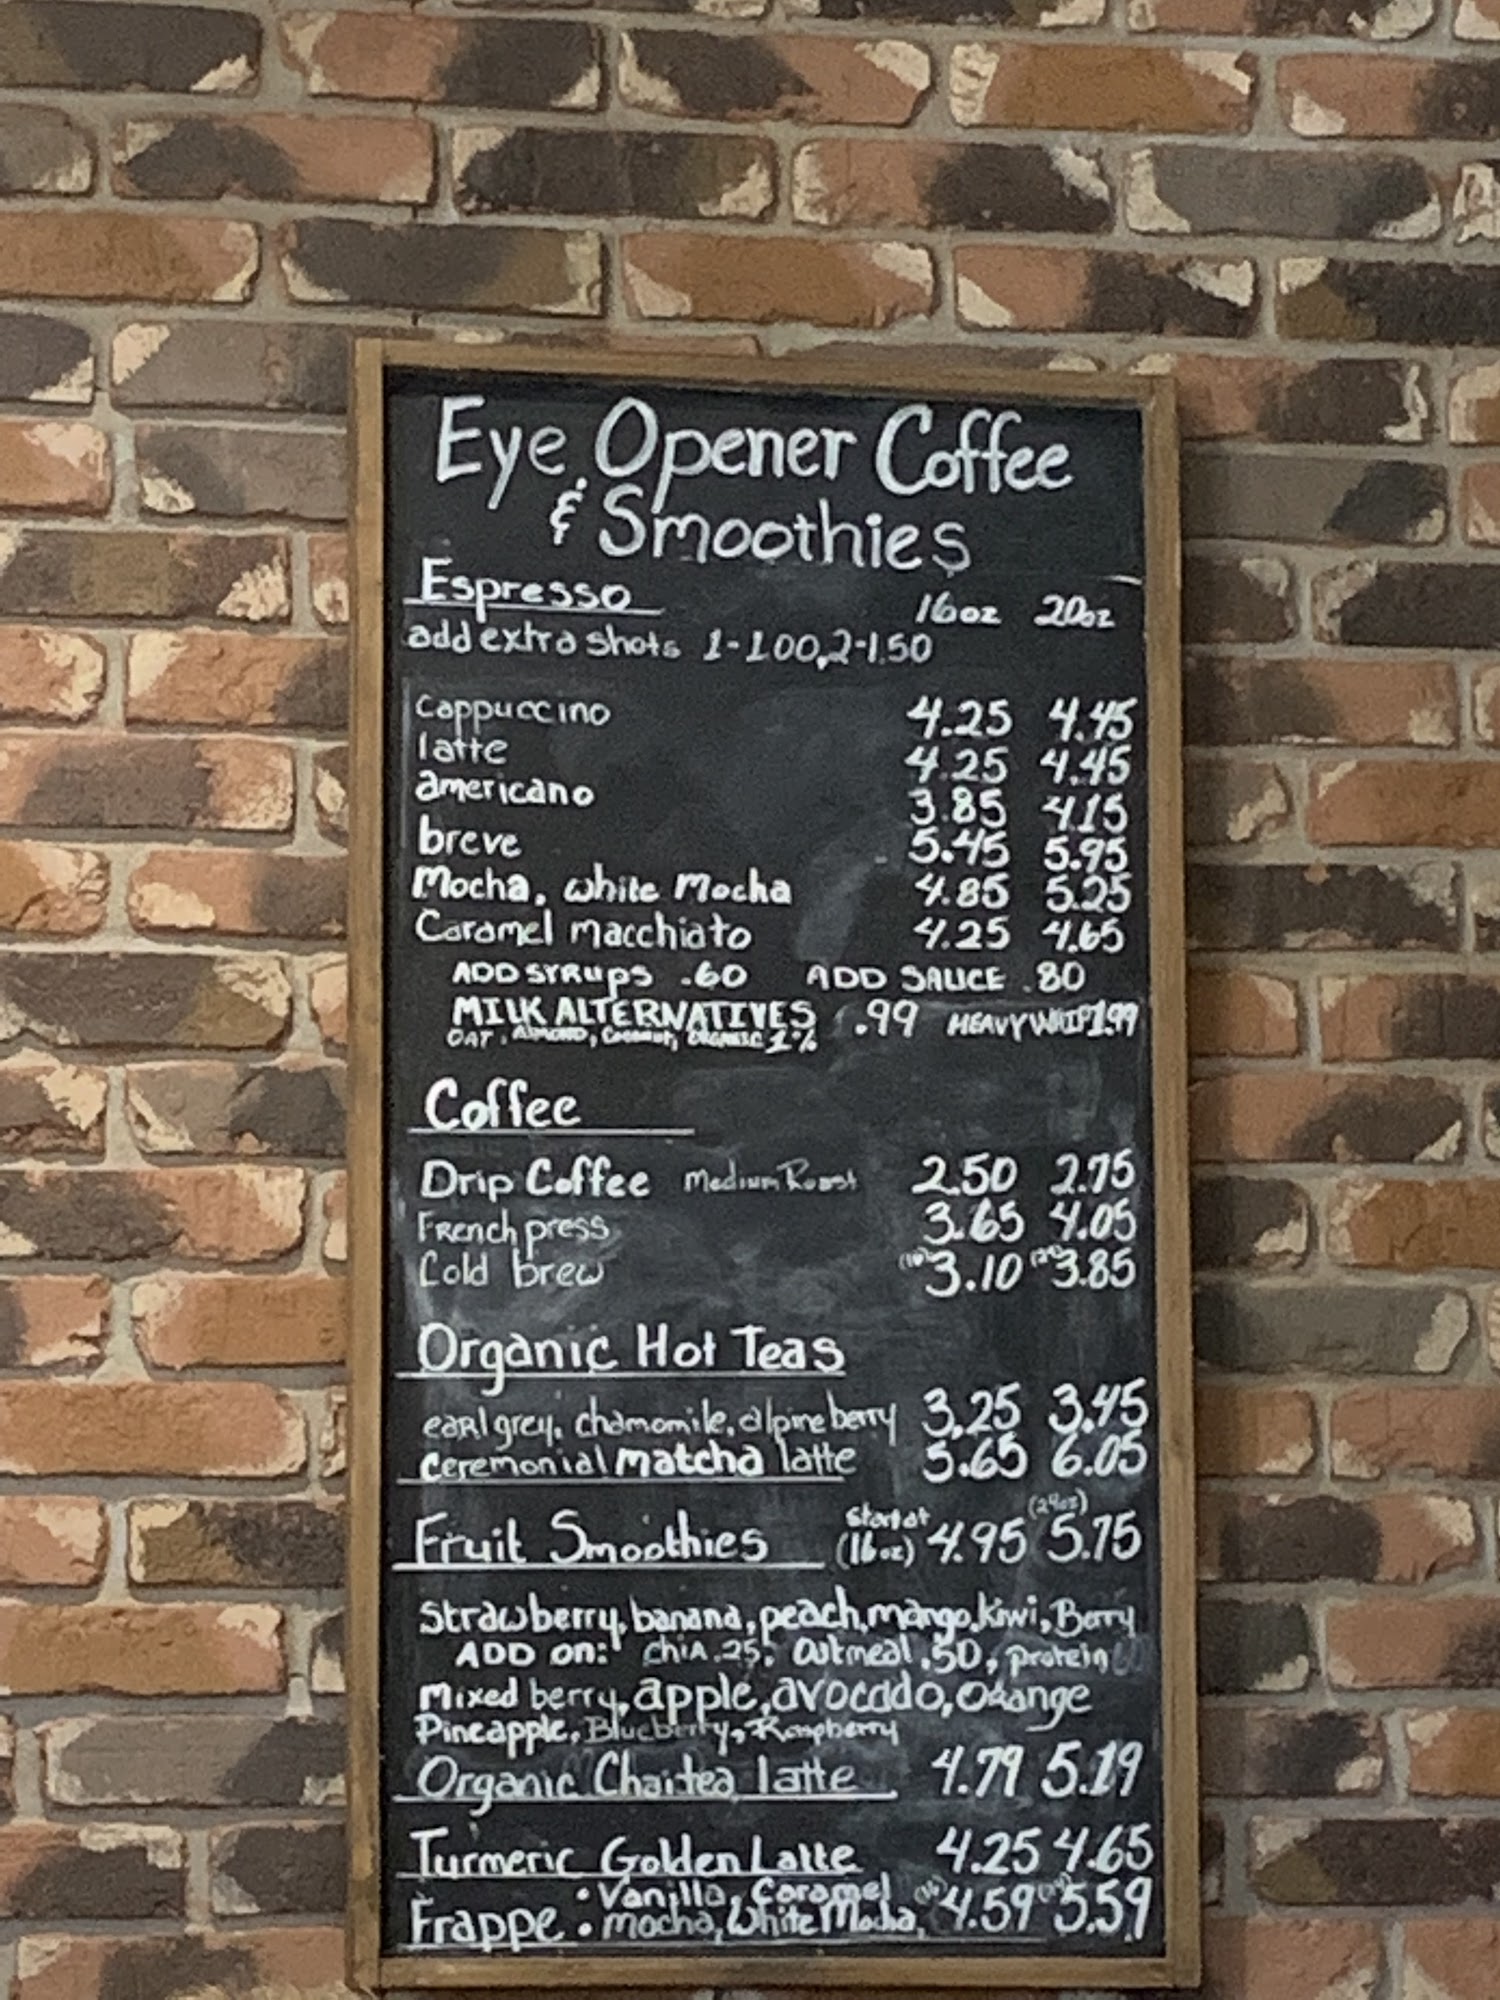 Eye Opener Coffee
& Smoothies
Espresso 16oz 20oz
add extra shots 1-1.00, 2-1.50
cappuccino 4.25 4.45
latte 4.25 4.45
americano 3.85 4.15
breve 5.45 5.95
Mocha, white Mocha 4.85 5.25
Caramel macchiato 4.25 4.65
ADD SYRUPS .60 ADD SAUCE .80
MILK ALTERNATIVES .99 HEAVY WHIP 1.99
OAT, ALMOND, Coconut, ORGANIC 2%
Coffee
Drip Coffee Medium Roast 2.50 2.75
French press 3.65 4.05
Cold brew (16) 3.10 3.85
Organic Hot Teas
earl grey, chamomile, alpine berry 3.25 3.45
ceremonial matcha latte 5.65 6.05
Fruit Smoothies start at (16oz) 4.95 (24oz) 5.75
Strawberry, banana, peach, mango, kiwi, Berry
ADD on: chiA .25, Oatmeal .50, protein
Mixed berry, apple, avocado, orange
Pineapple, Blueberry, Raspberry
Organic Chai tea latte 4.79 5.19
Turmeric Golden Latte 4.25 4.65
Frappe • Vanilla, Caramel (16) 4.59 5.59
• mocha, White Mocha,